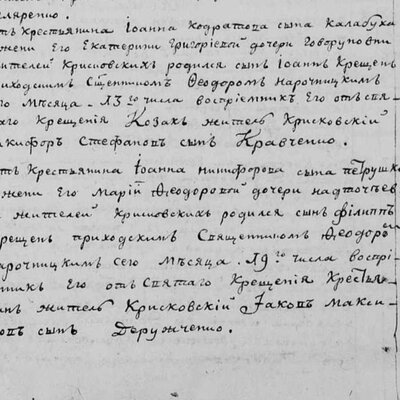 ляренно.
отъ крестьянина Іоанна Кодратова сына Калабука
жени его Екатерини Григоріевой дочери Говоруновни
жителей Крисковскихъ родился сынъ Іоаннъ крещенъ
приходскимъ Сщенникомъ Ѳеодоромъ Нарочницкимъ
сего Мѣсяца 13го числа воспріемникъ его отъ свя-
таго крещенія козакъ житель Крисковскій
Никифоръ Стефановъ сынъ Кравченко.
отъ крестьянина Іоанна Никифорова сына Петрушко
жени его Маріи Ѳеодоровой дочери
жителей Крисковскихъ родился сынъ Филиппъ
крещенъ приходскимъ Священникомъ Ѳеодоро
Нарочницкимъ сего Мѣсяца 19го числа воспрі-
емникъ его отъ Святаго Крещенія Крестья-
нинъ житель Крисковскій Іаковъ Макси-
мовъ сынъ Деружченко.